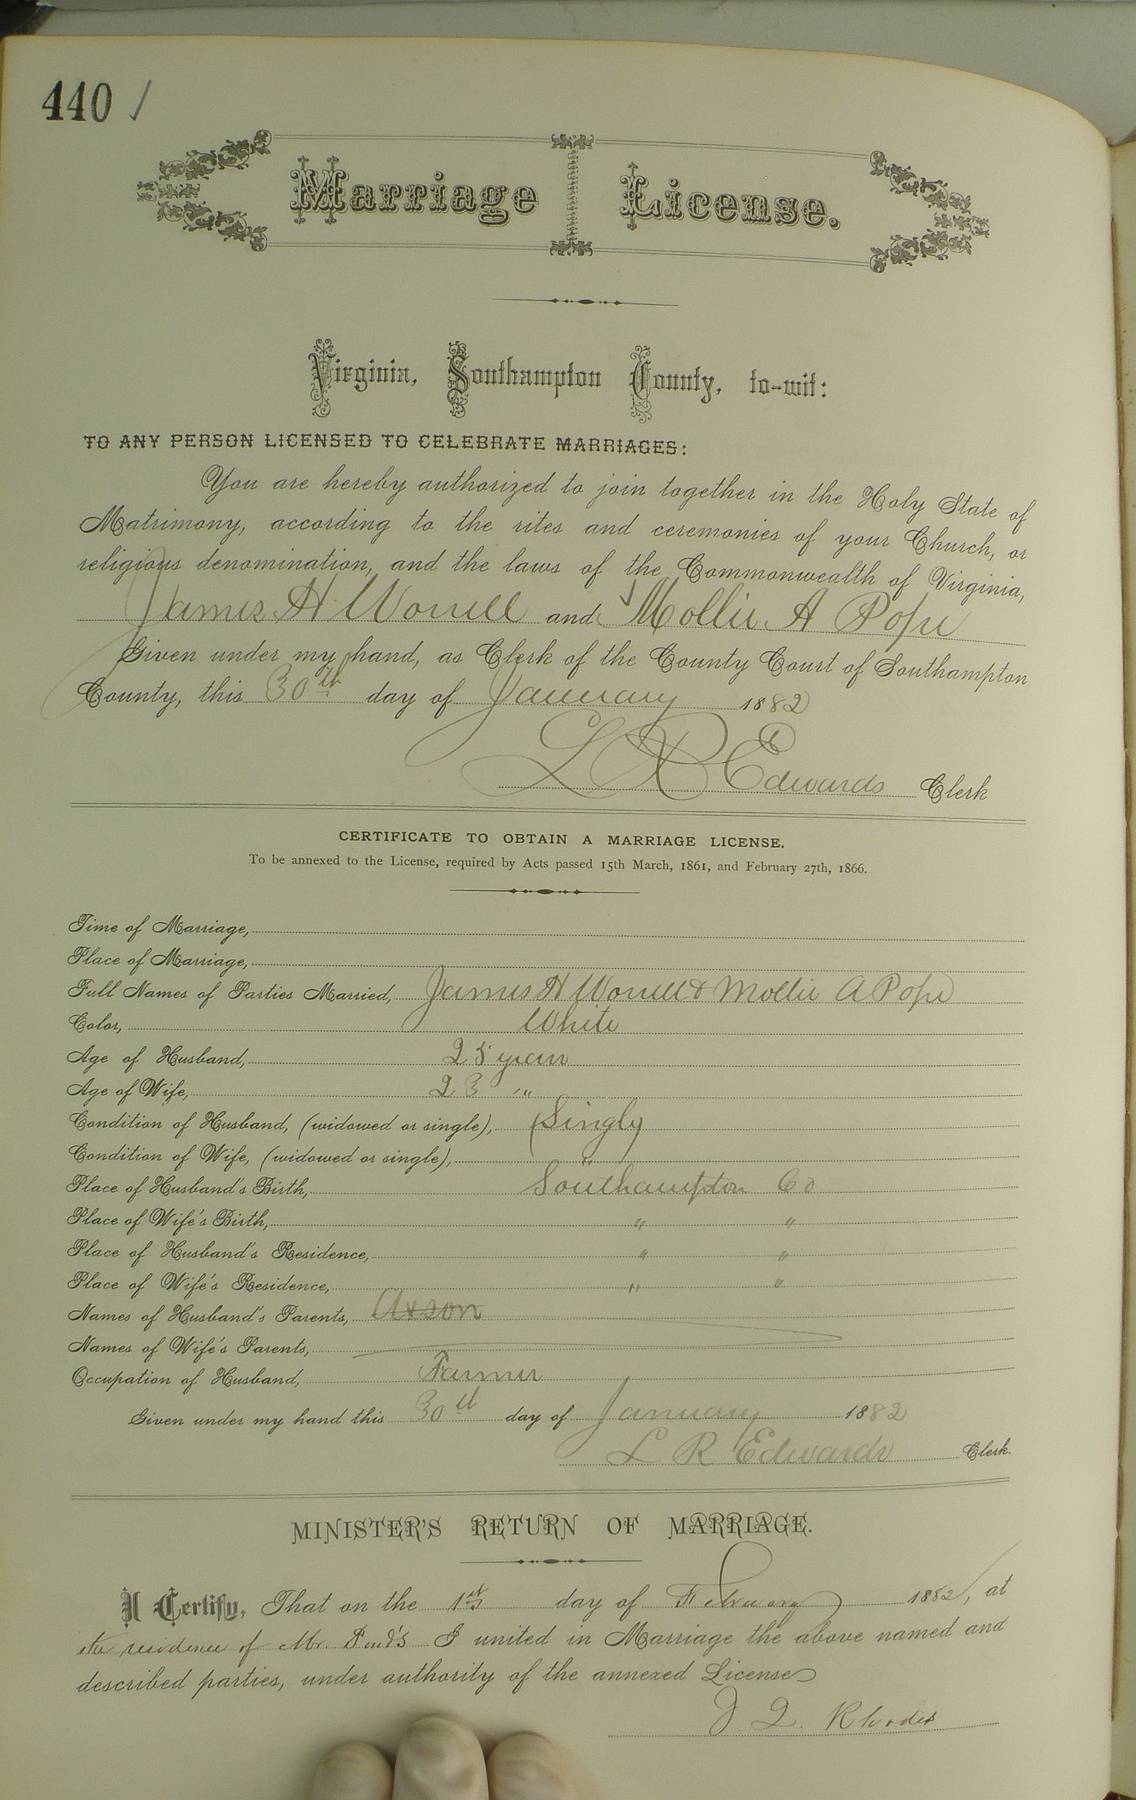 440 /
Marriage License.
Virginia, Southampton County, to-wit:
TO ANY PERSON LICENSED TO CELEBRATE MARRIAGES:
You are hereby authorized to join together in the Holy State of
Matrimony, according to the rites and ceremonies of your Church, or
religious denomination, and the laws of the Commonwealth of Virginia,
James H Worrell and Mollie A Pope
Given under my hand, as Clerk of the County Court of Southampton
County, this 30th day of January 1882
L R Edwards Clerk
CERTIFICATE TO OBTAIN A MARRIAGE LICENSE.
To be annexed to the License, required by Acts passed 15th March, 1861, and February 27th, 1866.
Time of Marriage,
Place of Marriage,
Full Names of Parties Married, James H Worrell & Mollie A Pope
Color, White
Age of Husband, 25 years
Age of Wife, 23 "
Condition of Husband, (widowed or single), Single
Condition of Wife, (widowed or single), "
Place of Husband's Birth, Southampton Co
Place of Wife's Birth, " "
Place of Husband's Residence, " "
Place of Wife's Residence, " "
Names of Husband's Parents,
Names of Wife's Parents,
Occupation of Husband, Farmer
Given under my hand this 30th day of January 1882
L R Edwards Clerk.
MINISTER'S RETURN OF MARRIAGE.
I Certify, That on the 1st day of February 1882, at
the residence of Mr. I united in Marriage the above named and
described parties, under authority of the annexed License
J. Q. Rhodes